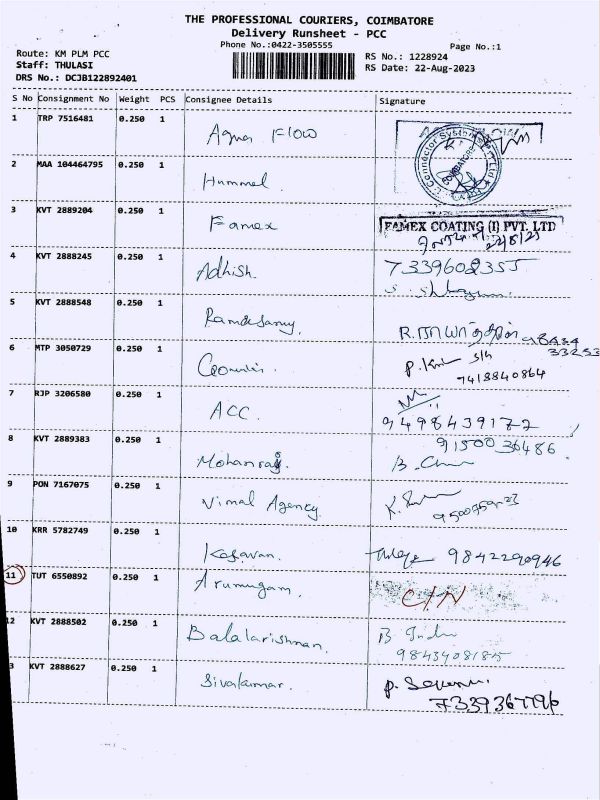 THE PROFESSIONAL COURIERS, COIMBATORE
Delivery Runsheet - PCC
Phone No.:0422-3505555
Page No.:1
Route: KM PLM PCC
Staff: THULASI
DRS No.: DCJB122892401
RS No.: 1228924
RS Date: 22-Aug-2023
S No Consignment No Weight PCS Consignee Details Signature
1 TRP 7516481 0.250 1 Aqua Flow
Connector Systems Pvt Ltd
COIMBATORE
2 MAA 104464795 0.250 1 Hummel.
3 KVT 2889204 0.250 1 Famex
FAMEX COATING (I) PVT. LTD
22/8/23
4 KVT 2888245 0.250 1 Adhish. 7339602355
5 KVT 2888548 0.250 1 Ramasamy.
6 MTP 3050729 0.250 1 P.
7418840864
7 RJP 3206580 0.250 1 ACC.
9498439172
8 KVT 2889383 0.250 1 Mohanraj. 9150036486
9 PON 7167075 0.250 1 Vimal Agency
10 KRR 5782749 0.250 1 Kesavan. 9842290946
11 TUT 6550892 0.250 1 Arumugam. C/N
12 KVT 2888502 0.250 1 Balakrishnan. B. Indu
9843408185
3 KVT 2888627 0.250 1 Sivakumar.
7339367796